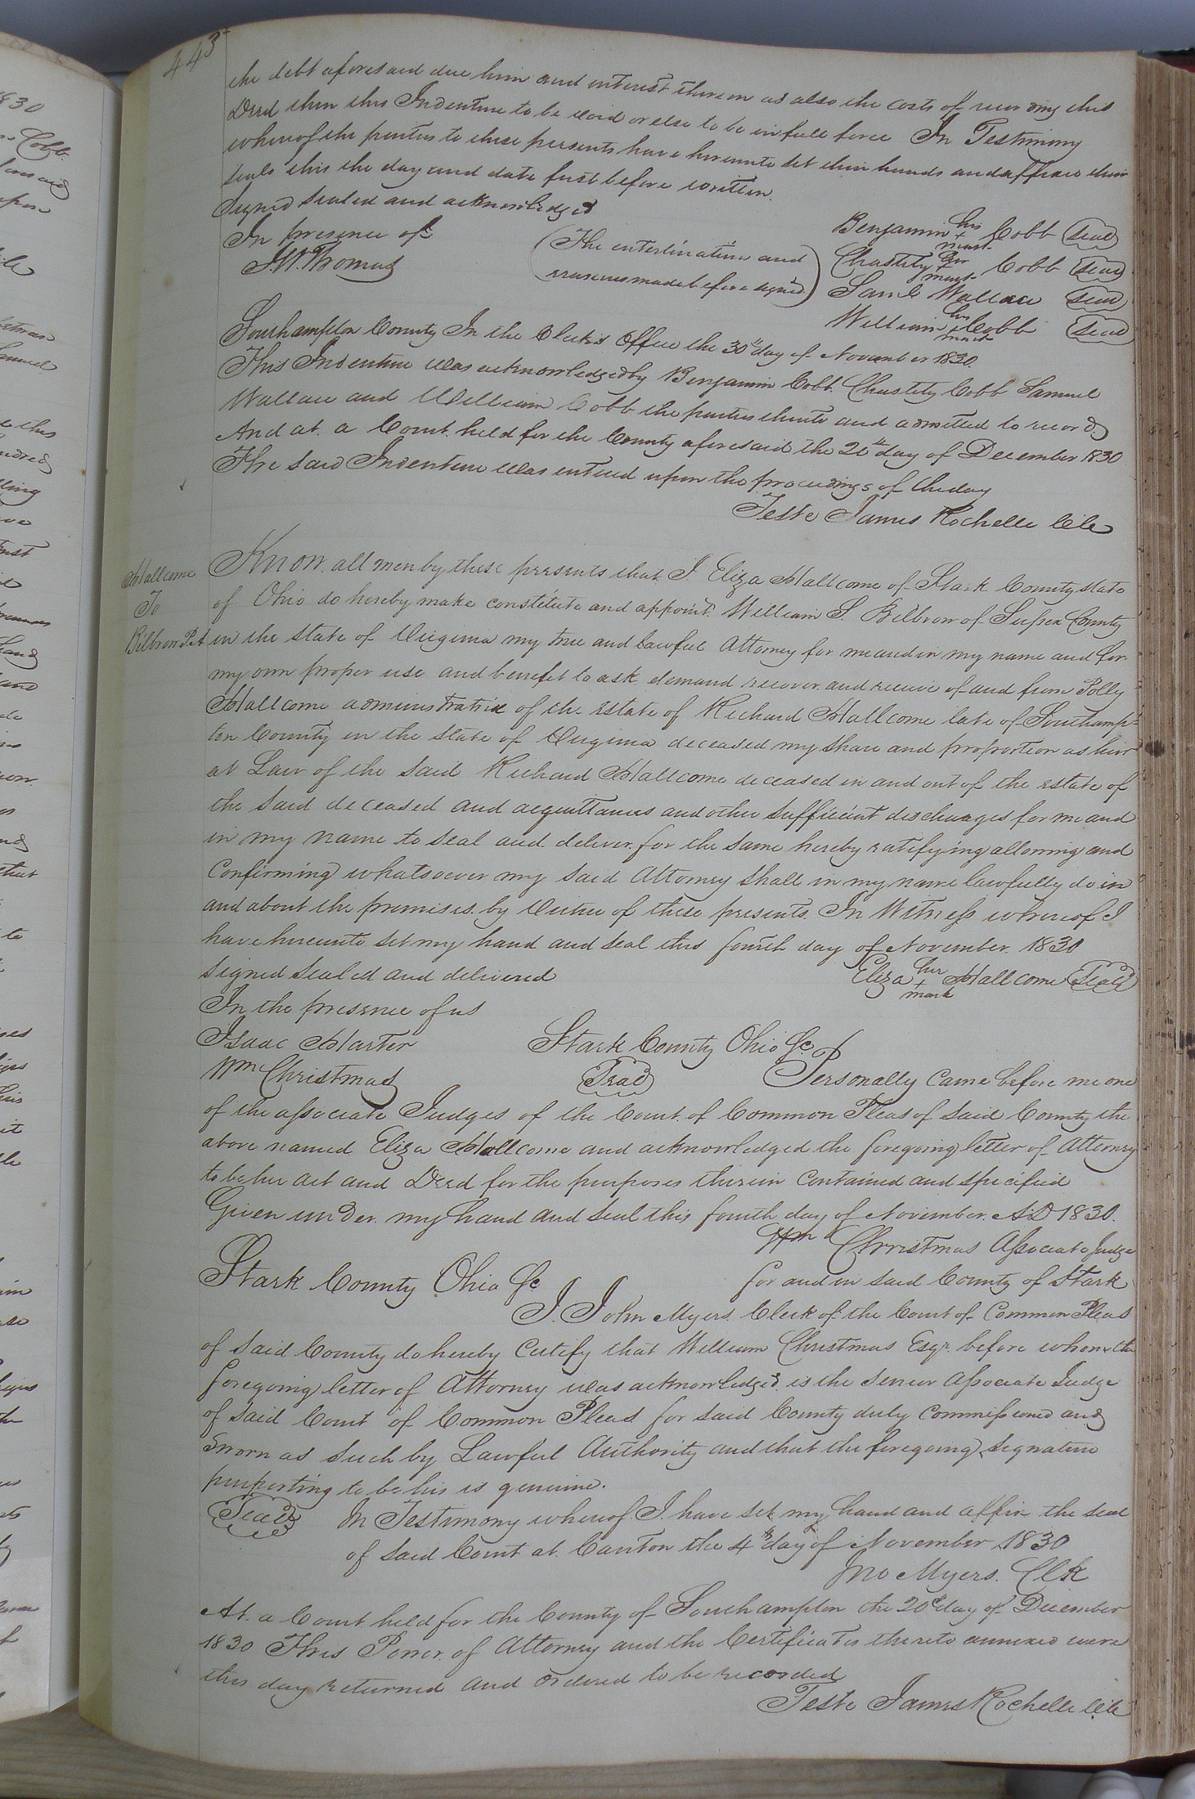 443
the debt aforesaid due him and interest thereon as also the costs of recording this
Deed then this Indenture to be void or else to be in full force In Testimony
whereof the parties to these presents have hereunto set their hands and affixed their
seals this the day and date first before written.
Signed Sealed and acknowledged
In presence of
J. W. Thomas
(The enterlination and
erasures made before signed)
Benjamin his + mark Cobb Seal
Chastity her + mark Cobb Seal
Saml Wallace Seal
William his + mark Cobb Seal
Southampton County In the Clerks Office the 30th day of November 1830.
This Indenture was acknowledged by Benjamin Cobb Chastity Cobb Samuel
Wallace and William Cobb the parties thereto and admitted to record
And at a Court held for the County aforesaid the 20th day of December 1830
The said Indenture was entered upon the proceedings of the day
Teste James Rochelle Clk
Hallcome
To
Bilbrow
Know all men by these presents that I Eliza Hallcome of Stark County state
of Ohio do hereby make constitute and appoint William S. Bilbrow of Sussex County
in the state of Virginia my true and lawful Attorney for me and in my name and for
my own proper use and benefit to ask demand recover and receive of and from Polly
Hallcome administratrix of the estate of Richard Hallcome late of Southamp-
ton County in the state of Virginia deceased my share and proportion as heir
at Law of the said Richard Hallcome deceased in and out of the estate of
the said deceased and acquittances and other sufficient discharges for me and
in my name to seal and deliver for the same hereby ratifying allowing and
Confirming whatsoever my said Attorney shall in my name lawfully do in
and about the premises by virtue of these presents. In Witness whereof I
have hereunto set my hand and seal this fourth day of November 1830
Signed sealed and delivered
Eliza her + mark Hallcome Seal
In the presence of us
Isaac Harter
Wm Christmas
Stark County Ohio Sc
Seal
Personally came before me one
of the associate Judges of the Court of Common Pleas of said County the
above named Eliza Hallcome and acknowledged the foregoing letter of Attorney
to be her act and Deed for the purposes therein contained and specified
Given under my hand and seal this fourth day of November. AD 1830.
Wm Christmas Associate Judge
for and in said County of Stark
Stark County Ohio Sc
I. John Myers Clerk of the Court of Common Pleas
of said County do hereby Certify that William Christmas Esqr. before whom the
foregoing letter of Attorney was acknowledged is the senior Associate Judge
of said Court of Common Pleas for said County duly Commissioned and
Sworn as such by Lawful Authority and that the foregoing signature
purporting to be his is genuine.
Seal
In Testimony whereof I have set my hand and affix the seal
of said Court at Canton the 4th day of November 1830
Jno Myers. Clk
At a Court held for the County of Southampton the 20th day of December
1830 This Power of Attorney and the Certificates thereto annexed were
this day returned and ordered to be recorded
Teste James Rochelle Clk